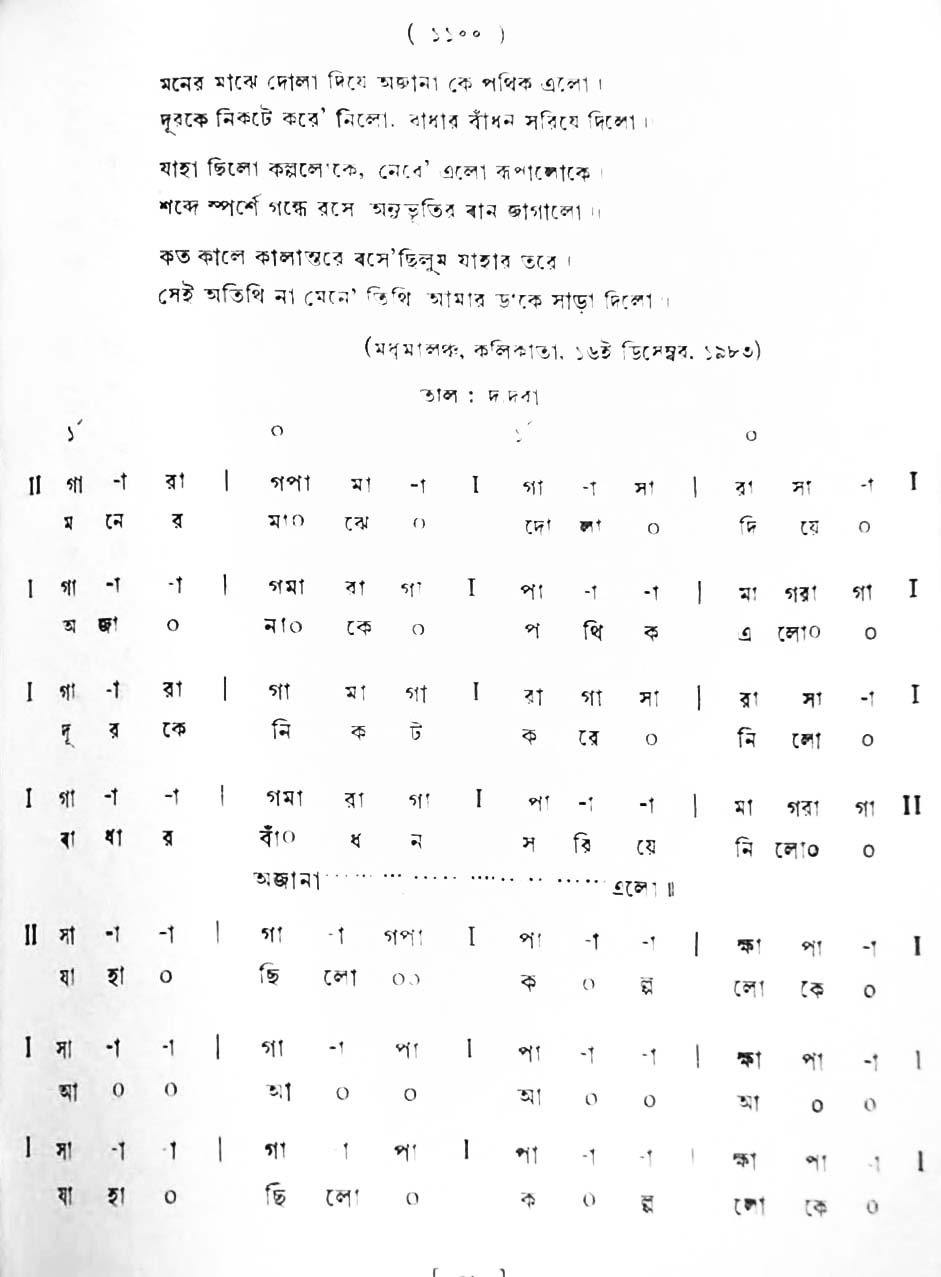 ( ১১০০ )
মনের মাঝে দোলা দিয়ে অজানা কে পথিক এলো।
দূরকে নিকটে করে' নিলো, বাধার বাঁধন সরিয়ে দিলো।
যাহা ছিলো কল্পলোকে, নেবে' এলো রূপালোকে।
শব্দে স্পর্শে গন্ধে রসে অনুভূতির বান জাগালো॥
কত কালে কালান্তরে বসে'ছিলুম যাহার তরে।
সেই অতিথি না মেনে' তিথি আমার ডাকে সাড়া দিলো।
(মধুমালঞ্চ, কলিকাতা, ১৬ই ডিসেম্বর, ১৯৮৩)
তাল : দাদরা
১´ ০ ১´ ০
II গা -া রা | গপা মা -া I গা -া সা | রা সা -া I
ম নে র মা০ ঝে ০ দো লা ০ দি য়ে ০
I গা -া -া | গমা রা গা I পা -া -া | মা গরা গা I
অ জা ০ না০ কে ০ প থি ক এ লো০ ০
I গা -া রা | গা মা গা I রা গা সা | রা সা -া I
দূ র কে নি ক টে ক রে ০ নি লো ০
I গা -া -া | গমা রা গা I পা -া -া | মা গরা গা II
বা ধা র বাঁ০ ধ ন স রি য়ে নি লো০ ০
অজানা ............ এলো॥
II সা -া -া | গা -া গপা I পা -া -া | ক্ষা পা -া I
যা হা ০ ছি লো ০০ ক ০ ল্প লো কে ০
I সা -া -া | গা -া পা I পা -া -া | ক্ষা পা -া I
আ ০ ০ আ ০ ০ আ ০ ০ আ ০ ০
I সা -া -া | গা া পা I পা -া -া | ক্ষা পা -া I
যা হা ০ ছি লো ০ ক ০ ল্প লো কে ০